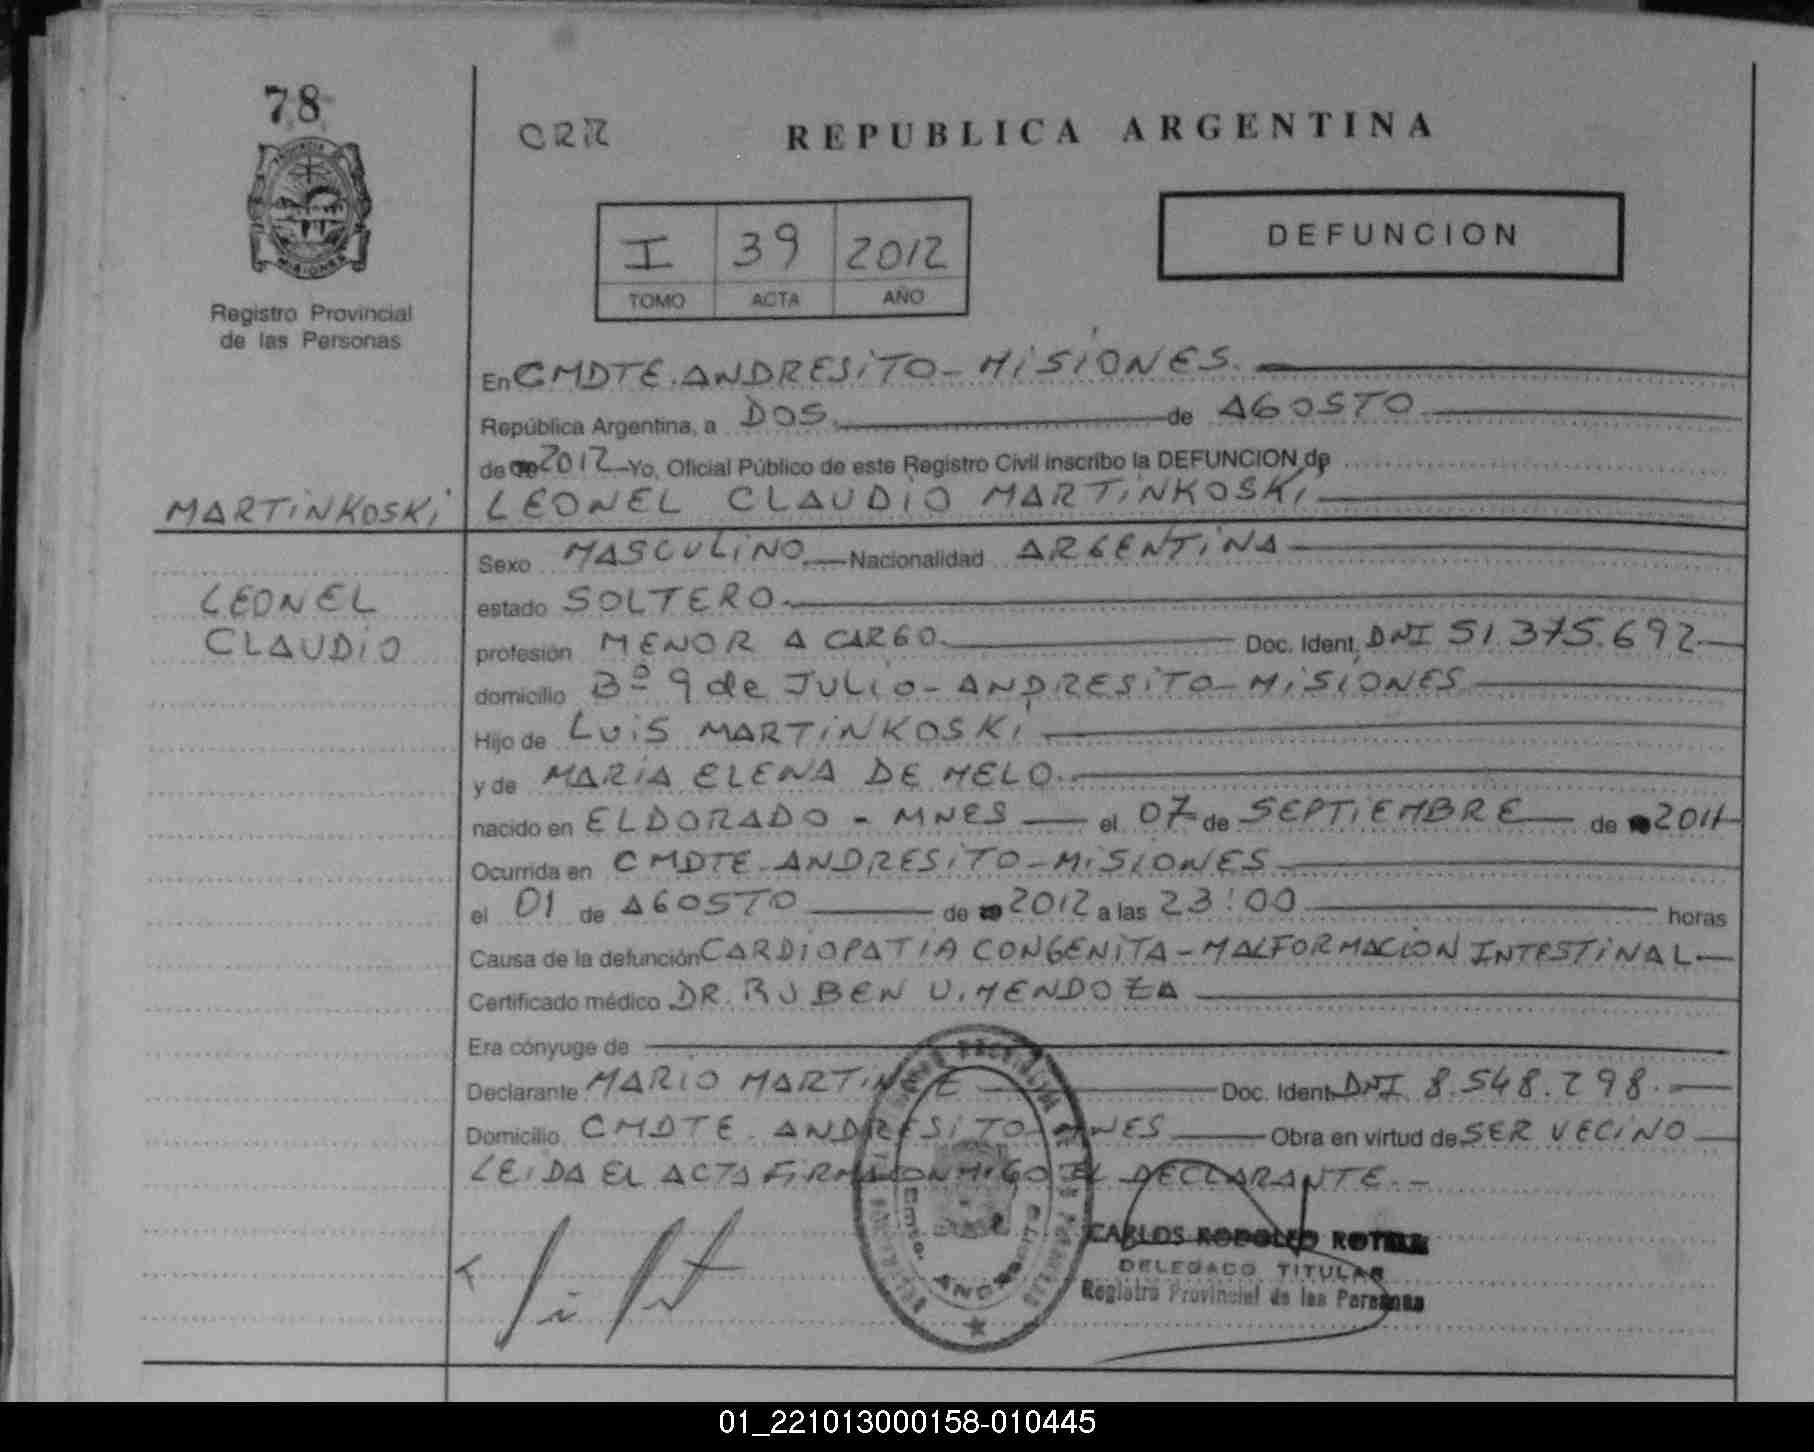 78
CRR
REPUBLICA ARGENTINA
MISIONES
Registro Provincial
de las Personas
I 39 2012
TOMO ACTA AÑO
DEFUNCION
En CMDTE. ANDRESITO - MISIONES.
República Argentina, a DOS de AGOSTO
de 2012 Yo, Oficial Público de este Registro Civil inscribo la DEFUNCION de
MARTINKOSKI LEONEL CLAUDIO MARTINKOSKI
Sexo MASCULINO Nacionalidad ARGENTINA
LEONEL estado SOLTERO
CLAUDIO profesión MENOR A CARGO Doc. Ident. DNI 51.375.692
domicilio Bº 9 de JULIO - ANDRESITO - MISIONES
Hijo de LUIS MARTINKOSKI
y de MARIA ELENA DE MELO
nacido en ELDORADO - MNES el 07 de SEPTIEMBRE de 2011
Ocurrida en CMDTE ANDRESITO - MISIONES
el 01 de AGOSTO de 2012 a las 23:00 horas
Causa de la defunción CARDIOPATIA CONGENITA - MALFORMACION INTESTINAL
Certificado médico DR. RUBEN U. MENDOZA
Era cónyuge de
Declarante MARIO Doc. Ident. DNI 8.548.298
Domicilio CMDTE. ANDRESITO MNES Obra en virtud de SER VECINO
LEIDA EL ACTA FIRMA CONMIGO EL DECLARANTE.-
CARLOS RODOLFO
DELEGADO TITULAR
Registro Provincial de las Personas
01_221013000158-010445